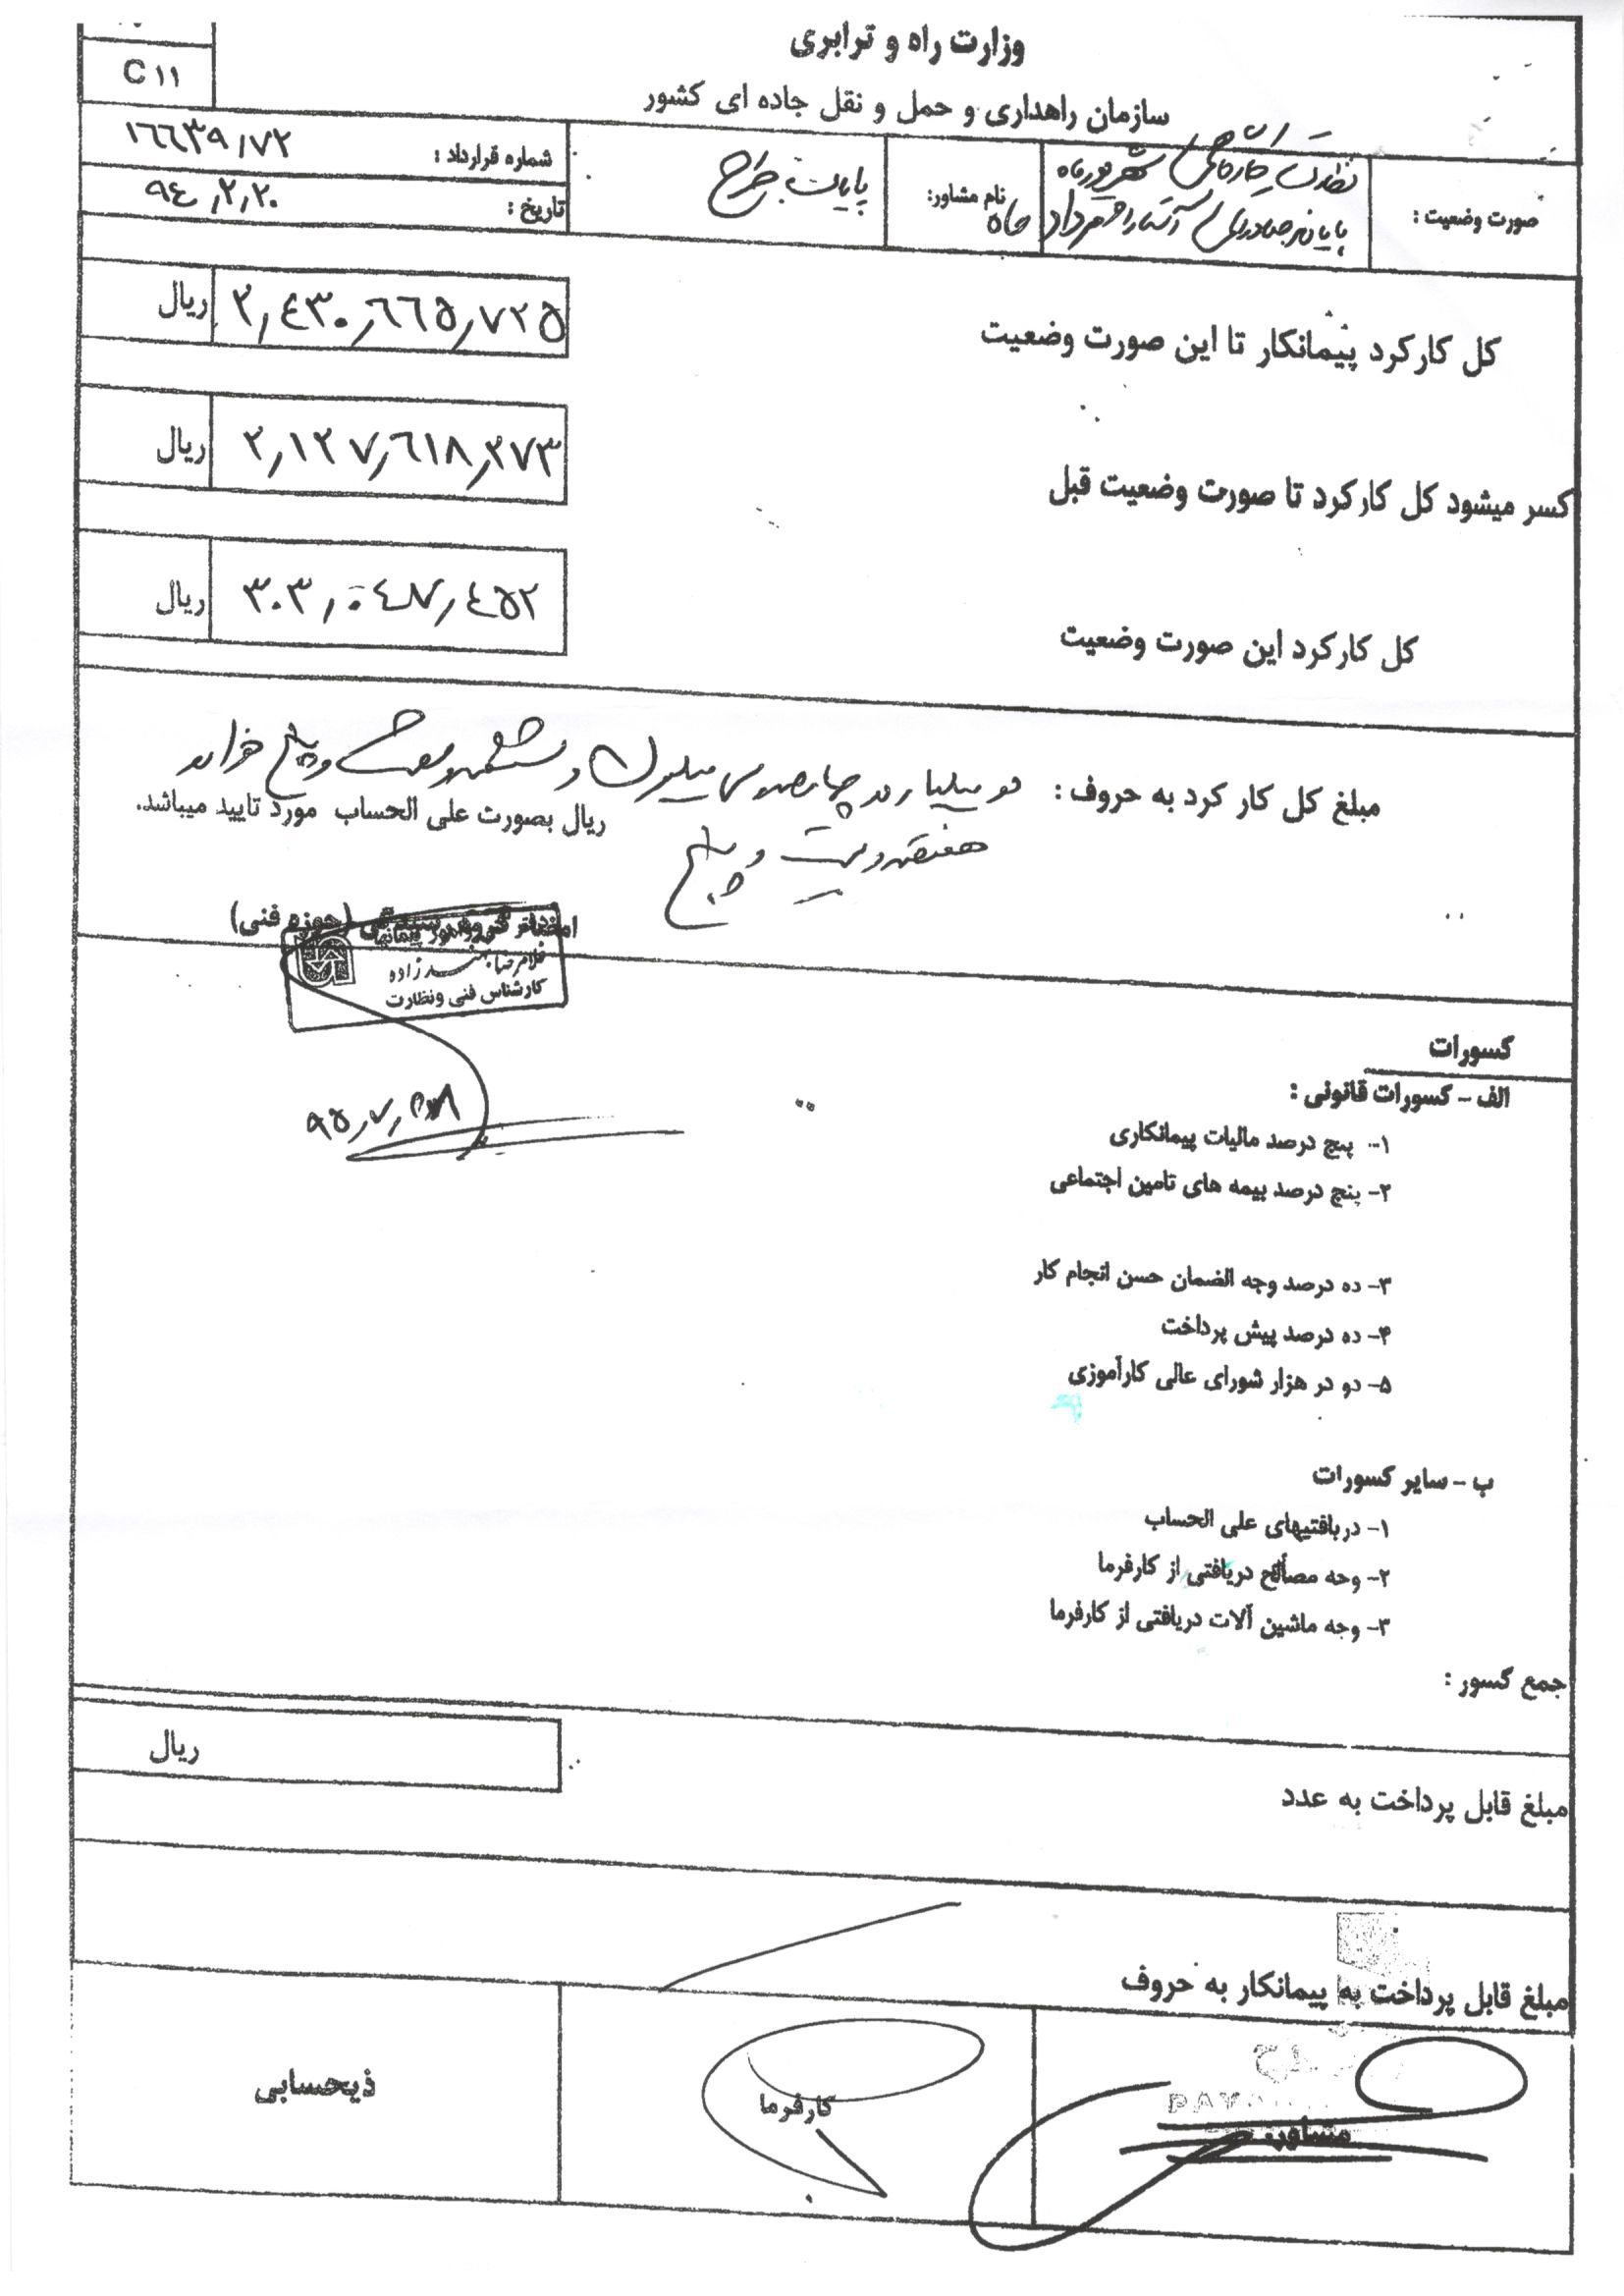 وزارت راه و ترابری
C ۱۱
سازمان راهداری و حمل و نقل جاده ای کشور
صورت وضعیت :
نظارت کارگاهی شهریور ماه
پایانه صادراتی آستارا مرداد ماه
نام مشاور:
پایات طرح
شماره قرارداد :
۱۶۶۳۹/۷۲
تاریخ :
۹٤/۲/۲۰
کل کارکرد پیمانکار تا این صورت وضعیت
۲/٤۳۰/۶۶۵/۷۲۵
ریال
کسر میشود کل کارکرد تا صورت وضعیت قبل
۲/۱۲۷/۶۱۸/۲۷۳
ریال
کل کارکرد این صورت وضعیت
۳۰۳/۰٤۷/٤۵۲
ریال
مبلغ کل کار کرد به حروف : دو میلیارد و چهارصد و سی میلیون و ششصد و شصت و پنج هزار و
هفتصد و بیست و پنج
ریال بصورت علی الحساب مورد تایید میباشد.
(حوزه فنی)
غلامرضا
کارشناس فنی و نظارت
۹۵/۷/
کسورات
الف - کسورات قانونی :
۱- پنج درصد مالیات پیمانکاری
۲- پنج درصد بیمه های تامین اجتماعی
۳- ده درصد وجه الضمان حسن انجام کار
۴- ده درصد پیش پرداخت
۵- دو در هزار شورای عالی کارآموزی
ب - سایر کسورات
۱- دریافتیهای علی الحساب
۲- وجه مصالح دریافتی از کارفرما
۳- وجه ماشین آلات دریافتی از کارفرما
جمع کسور :
مبلغ قابل پرداخت به عدد
ریال
مبلغ قابل پرداخت به پیمانکار به حروف
مشاور
کارفرما
ذیحسابی